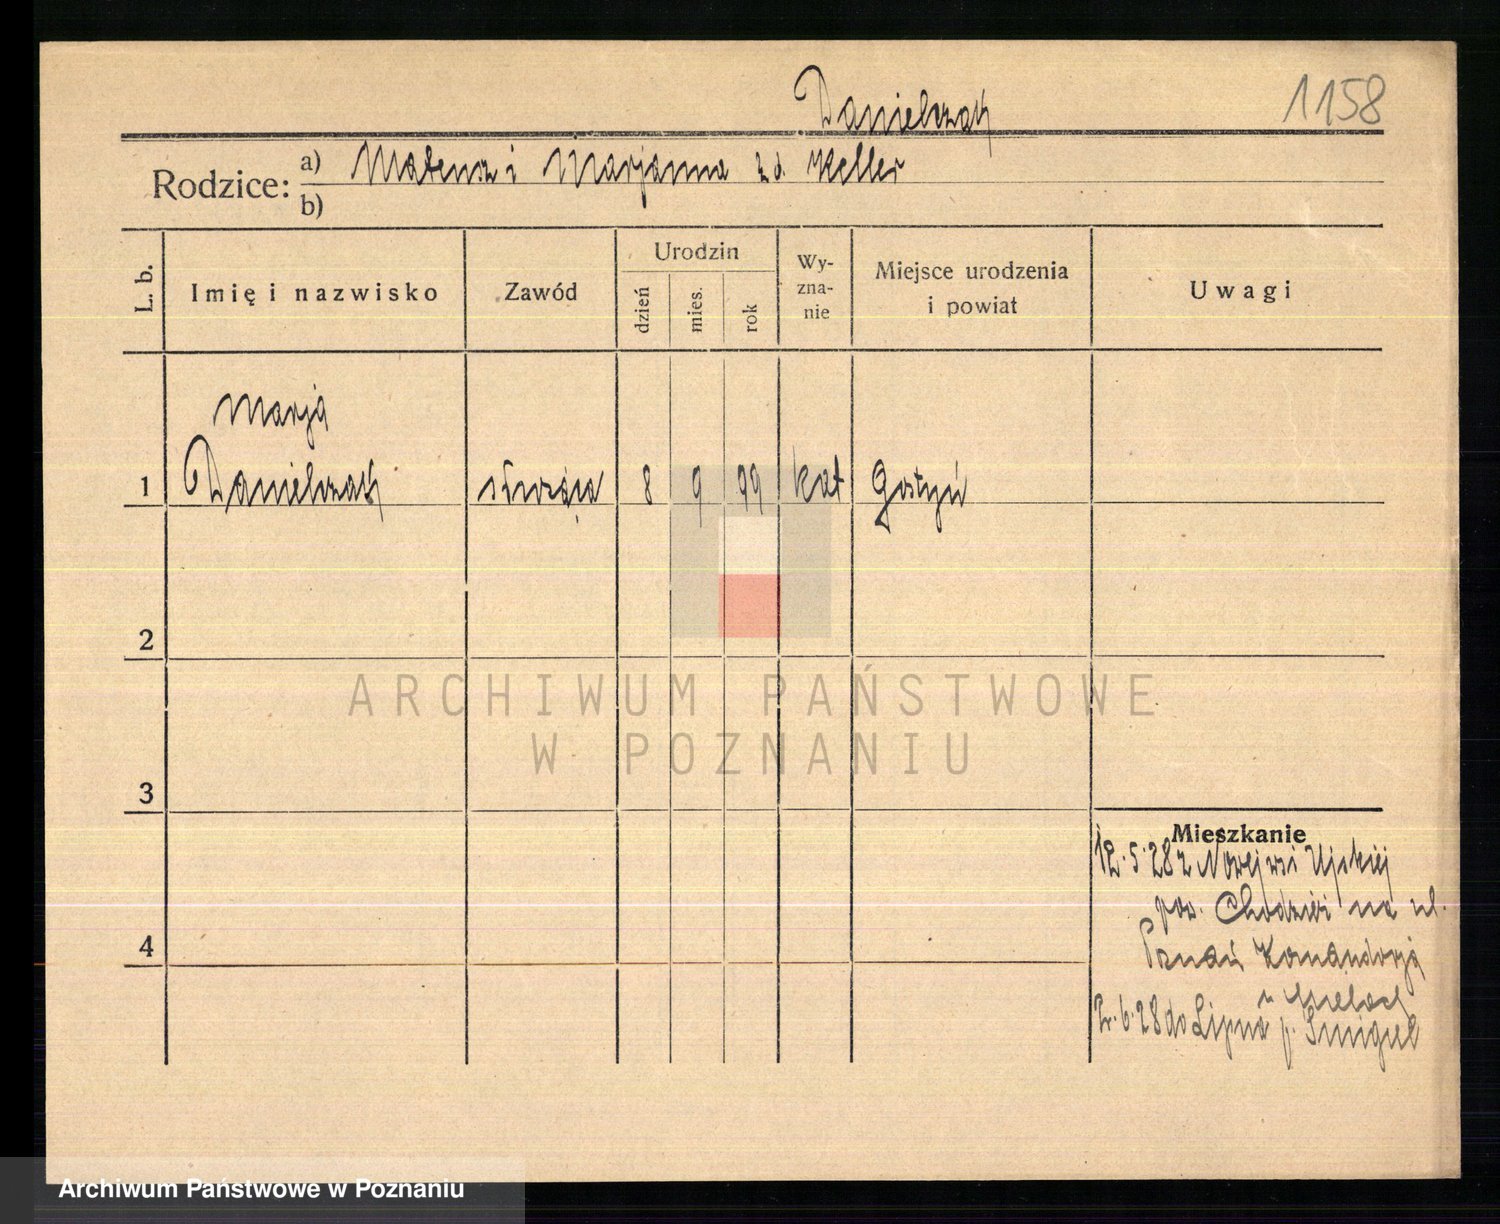 Danielczak
1158
Rodzice: a) Mateusz i Marjanna z d. Keller
b)
L. b.
Imię i nazwisko
Zawód
Urodzin
dzień
mies.
rok
Wy-
zna-
nie
Miejsce urodzenia
i powiat
Uwagi
Marja
1 Danielczak służąca 8 9 99 kat Gostyń
2
ARCHIWUM PAŃSTWOWE
W POZNANIU
3
Mieszkanie
12.5.28 z Nowej wsi Ujskiej
pow. Chodzież na ul.
Poznań Komandorja
u
4
2.6.28 do Lipna p. Śmigiel
Archiwum Państwowe w Poznaniu